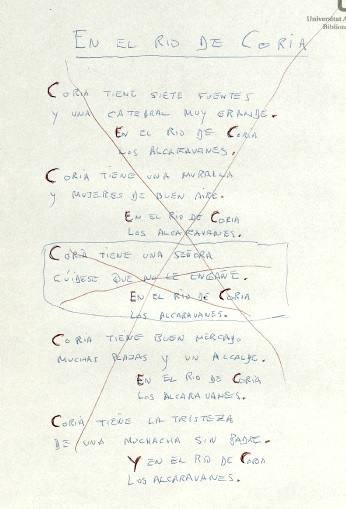 Universitat A
Bibliot
EN EL RIO DE CORIA
CORIA TIENE SIETE FUENTES
Y UNA CATEDRAL MUY GRANDE.
EN EL RIO DE CORIA
LOS ALCARAVANES.
CORIA TIENE UNA MURALLA
Y MUJERES DE BUEN AIRE.
EN EL RIO DE CORIA
LOS ALCARAVANES.
CORIA TIENE UNA SEÑORA
CUIDESE QUE NO LE ENGAÑE.
EN EL RIO DE CORIA
LOS ALCARAVANES.
CORIA TIENE BUEN MERCADO
MUCHAS PLAZAS Y UN ALCALDE.
EN EL RIO DE CORIA
LOS ALCARAVANES.
CORIA TIENE LA TRISTEZA
DE UNA MUCHACHA SIN PADRE.
Y EN EL RIO DE CORIA
LOS ALCARAVANES.